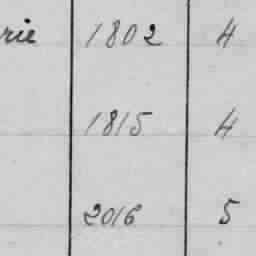 rie 1802 4
1815 4
2016 5